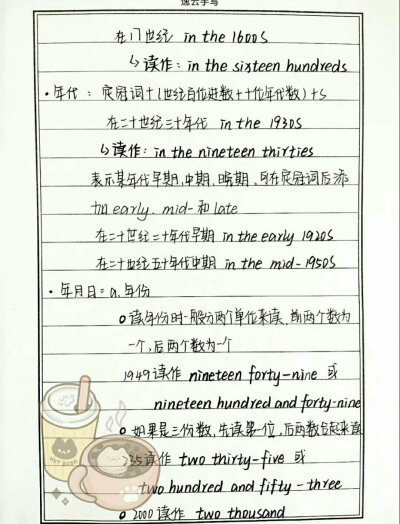 逸云手写
在17世纪 in the 1600s
↳读作: in the sixteen hundreds
·年代: 定冠词+(世纪百位进数+十位年代数)+s
在二十世纪三十年代 in the 1930s
↳读作: in the nineteen thirties
表示某年代早期,中期,晚期,可在定冠词后添
加 early, mid- 和 late
在二十世纪二十年代早期 in the early 1920s
在二十世纪五十年代中期 in the mid-1950s
·年月日= a.年份
o读年份时一般分两个单位来读,前两个数为
一个,后两个数为一个
1949读作 nineteen forty-nine 或
nineteen hundred and forty-nine
o如果是三位数,先读第一位,后两数合起来读
235读作 two thirty-five 或
two hundred and fifty-three
o 2000 读作 two thousand